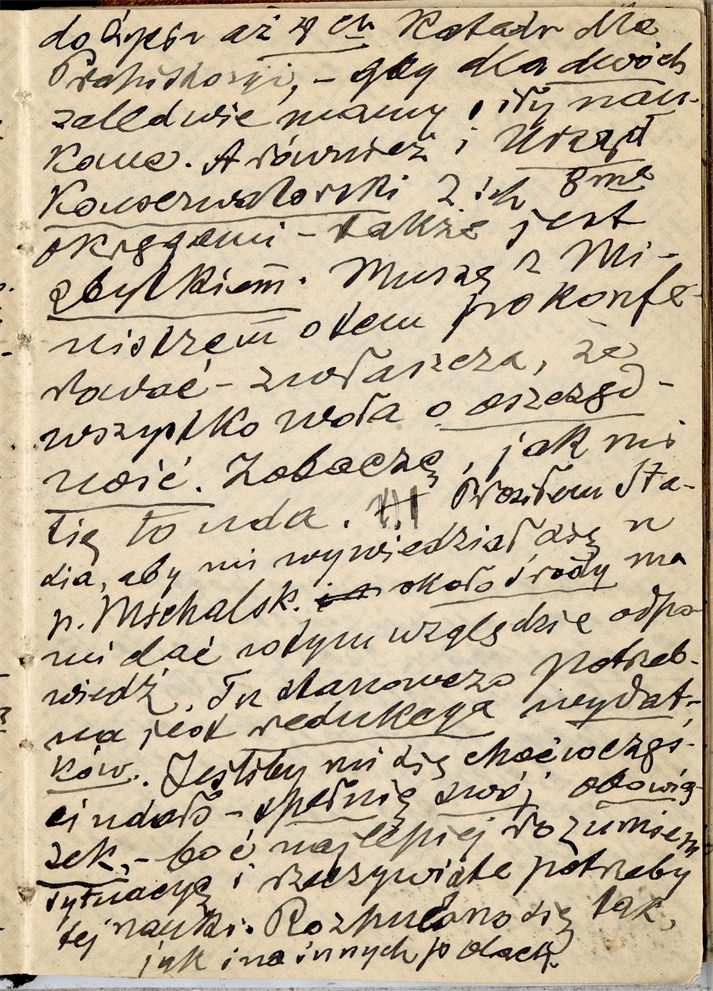 aż 4 ch Katedr dla
Prahistorji, – gdy dla dwóch
zaledwie mamy siły nau-
kowe. A również i Urząd
Konserwatorski z ich 8ma
okręgami – także jest
zbytkiem. Muszę z Mi-
nistrem o tem pokonfe-
rować – zwłaszcza, że
wszystko woła o oszczęd-
ność. Zobaczę, jak mi
się to uda. Prosiłem Sta-
sia, aby mi wywiedział się u
p. Michalsk. około środy ma
mi dać w tym względzie odpo-
wiedź. Tu stanowczo potrzeb-
na jest redukcya wydat-
ków. Jeśliby mi się choć w częś-
ci udało – spełnię swój obowią-
zek, – boć najlepiej rozumiem
sytuacyę i rzeczywiste potrzeby
tej nauki. Rozhulano się tak,
jak i na innych polach.